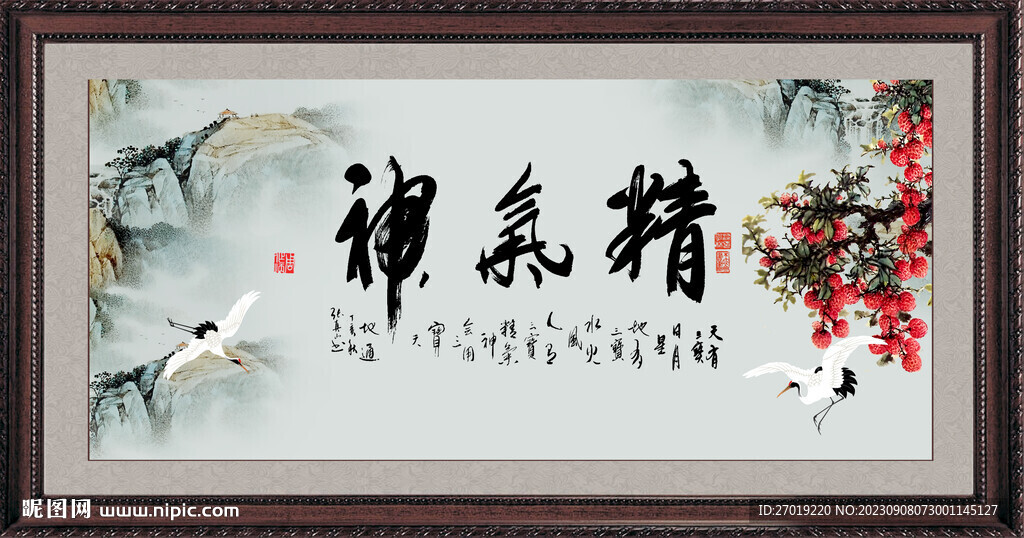 精氣神
天有
三寶
日月
星
地有
三寶
水火
風
人有
三寶
精氣
神
会用
三
寶
天
地通
昵图网 www.nipic.com
ID:27019220 NO:20230908073001145127